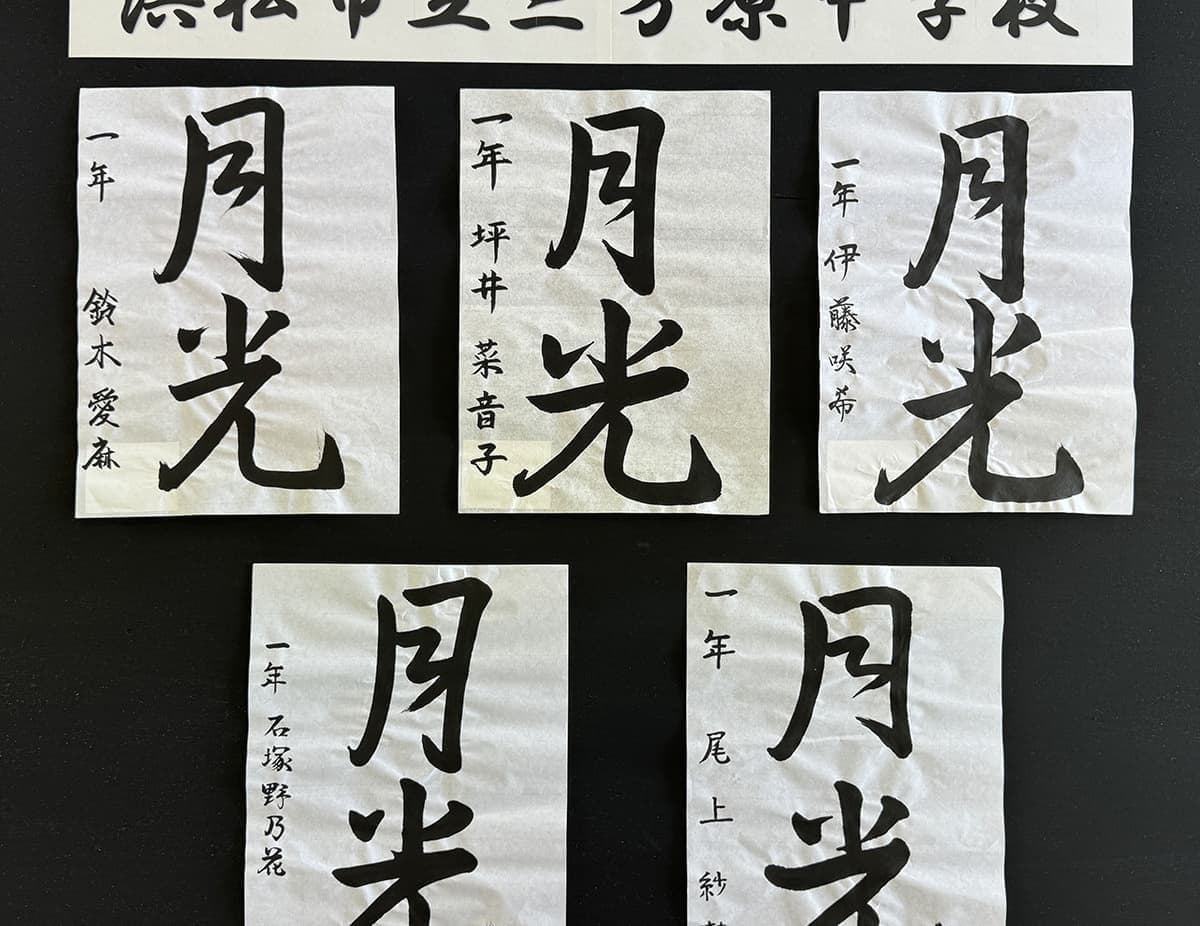 浜松市立三方原中学校
月光
一年 鈴木愛麻
月光
一年 坪井菜音子
月光
一年 伊藤咲希
月光
一年 石塚野乃花
月光
一年 尾上紗